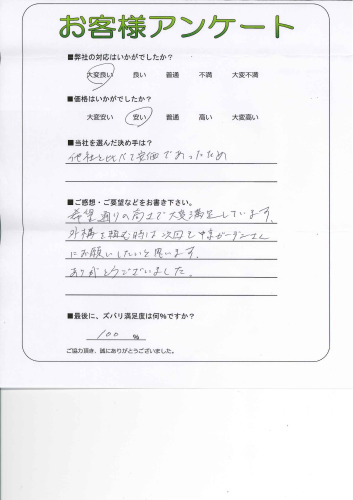 お客様アンケート
■弊社の対応はいかがでしたか？
大変良い 良い 普通 不満 大変不満
■価格はいかがでしたか？
大変安い 安い 普通 高い 大変高い
■当社を選んだ決め手は？
他社と比べて安価であったため
■ご感想・ご要望などをお書き下さい。
希望通りの高さで大変満足しています。
外構を頼む時は次回もガーデンさん
にお願いしたいと思います。
ありがとうございました。
■最後に、ズバリ満足度は何%ですか？
100 %
ご協力頂き、誠にありがとうございました。